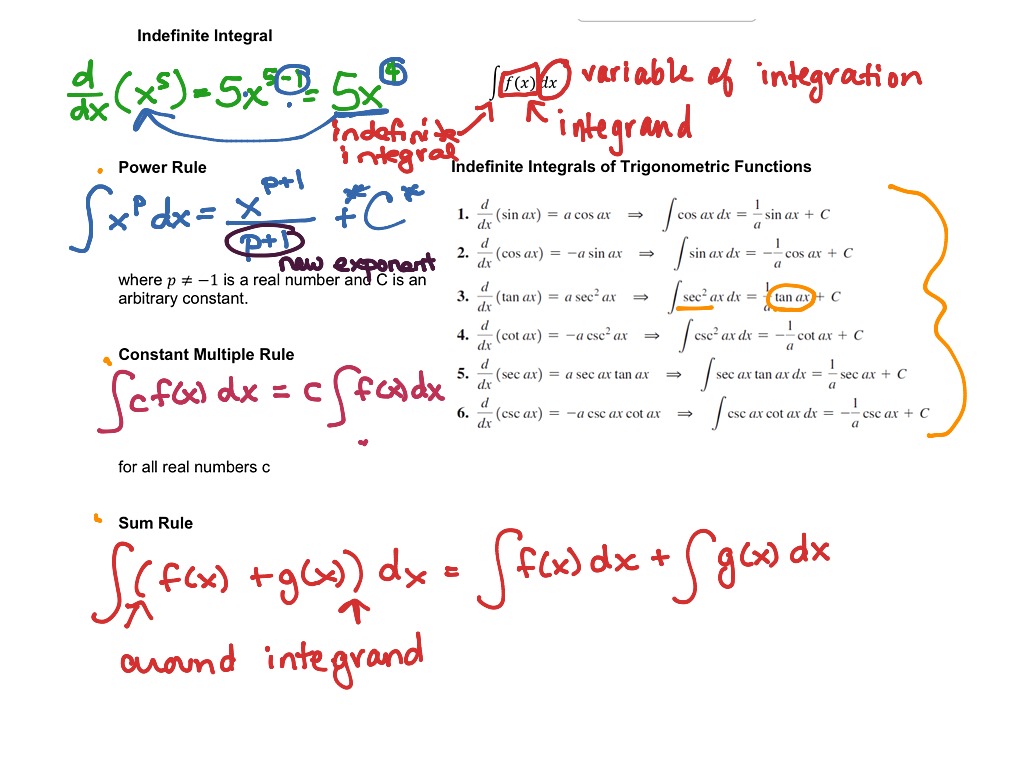 Indefinite Integral
d/dx (x⁵) = 5·x⁵⁻¹ = 5x⁴
∫ f(x) dx variable of integration
integrand
indefinite
integral
Power Rule
∫ xᵖ dx = xᵖ⁺¹/(p+1) + C
new exponent
where p ≠ −1 is a real number and C is an
arbitrary constant.
Constant Multiple Rule
∫ c f(x) dx = c ∫ f(x) dx
for all real numbers c
Indefinite Integrals of Trigonometric Functions
1. d/dx (sin ax) = a cos ax ⇒ ∫ cos ax dx = 1/a sin ax + C
2. d/dx (cos ax) = −a sin ax ⇒ ∫ sin ax dx = −1/a cos ax + C
3. d/dx (tan ax) = a sec² ax ⇒ ∫ sec² ax dx = 1/a tan ax + C
4. d/dx (cot ax) = −a csc² ax ⇒ ∫ csc² ax dx = −1/a cot ax + C
5. d/dx (sec ax) = a sec ax tan ax ⇒ ∫ sec ax tan ax dx = 1/a sec ax + C
6. d/dx (csc ax) = −a csc ax cot ax ⇒ ∫ csc ax cot ax dx = −1/a csc ax + C
Sum Rule
∫ (f(x) + g(x)) dx = ∫ f(x) dx + ∫ g(x) dx
around integrand